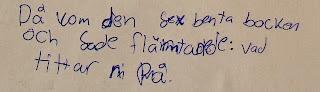 Då kom den sex benta bocken
och Sade vad
tittar ni på.